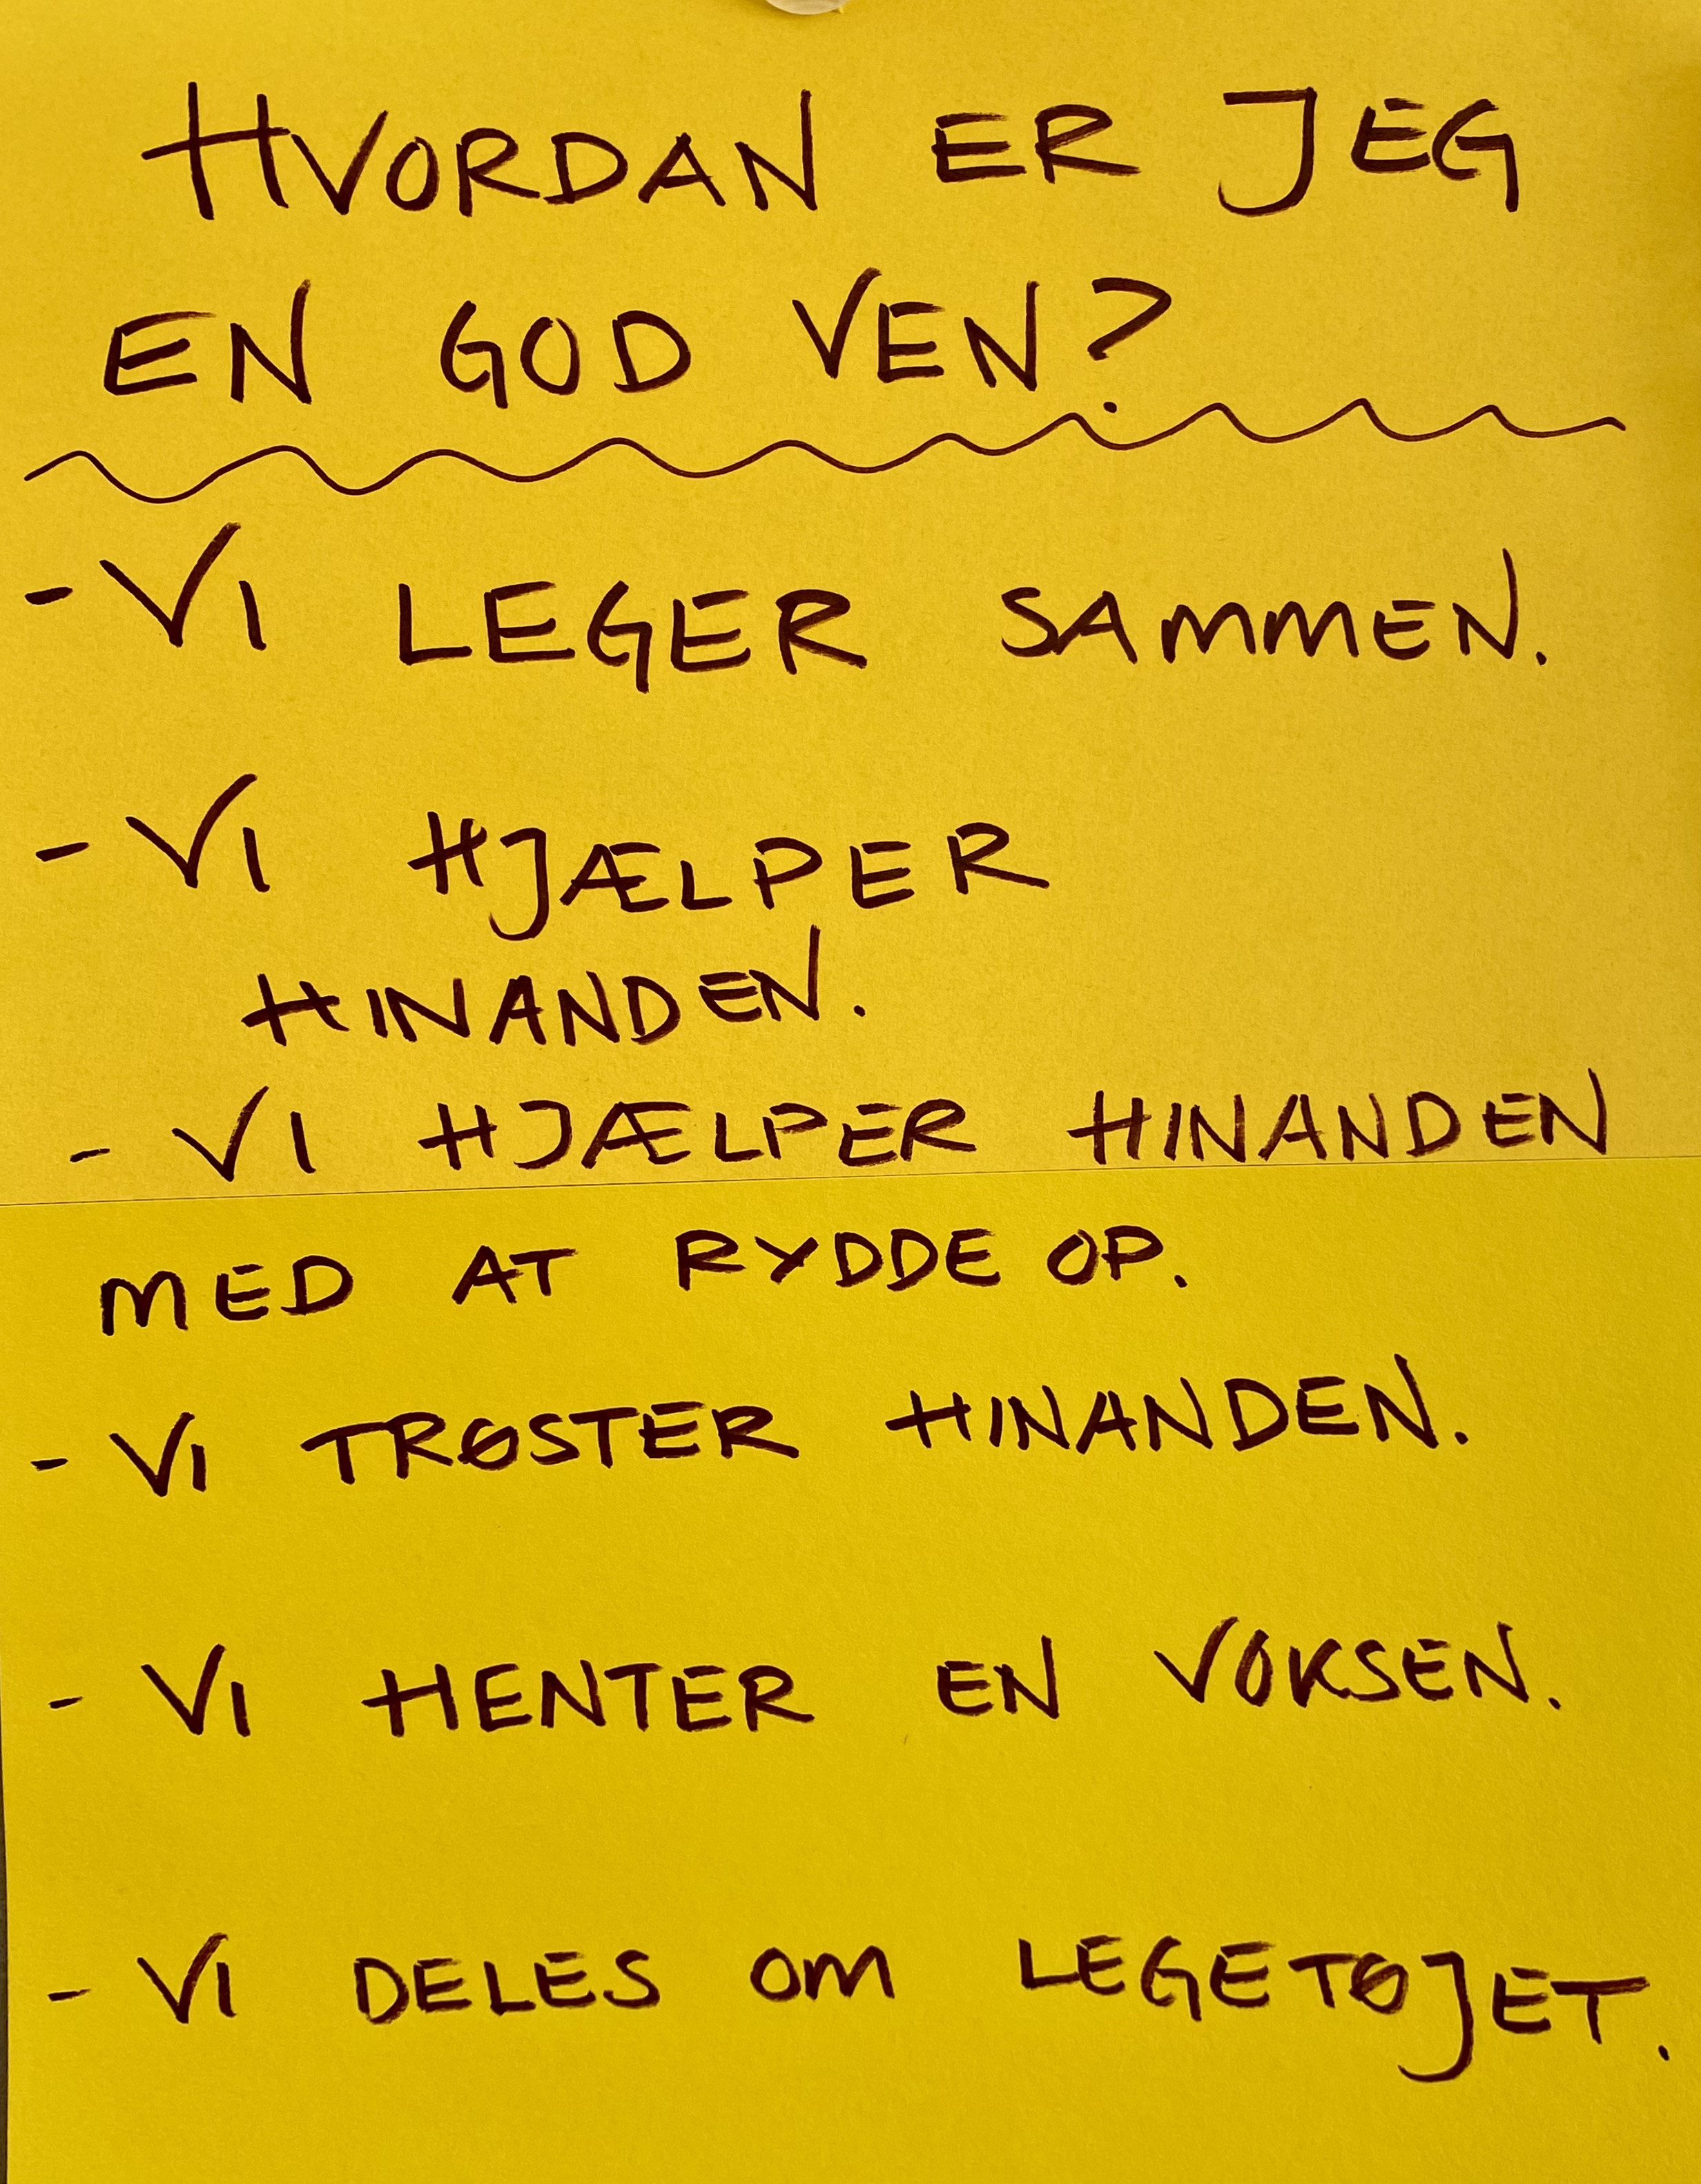 HVORDAN ER JEG
EN GOD VEN?
- VI LEGER SAMMEN.
- VI HJÆLPER
HINANDEN.
- VI HJÆLPER HINANDEN
MED AT RYDDE OP.
- VI TRØSTER HINANDEN.
- VI HENTER EN VOKSEN.
- VI DELES OM LEGETØJET.